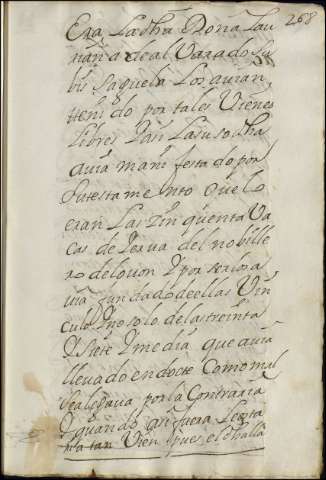 268
Era La dha Doña Lau
riana de alVarado su
bisaguela Los avian
tenido por tales Vienes
Libres Y asi La suso dha
avia manifestado por
su testamento que lo
eran Las Zinquenta Va
cas de Yerva del nobille
ro de lovon Y por ser
via fundado de ellas Vin
culo Y no solo de las treinta
Y siete Y media que avia
llevado en dote Como mal
se alegava por la Contraria
Y quando asi fuera Zierta
Vien pues el dho alla